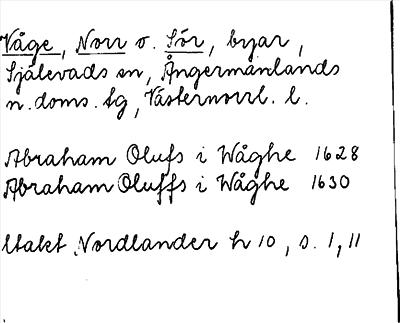 Våge, Norr o. Sör, byar,
Själevads sn, Ångermanlands
n. doms. sg, Västernorrl. l.
Abraham Olufs i Wåghe 1628
Abraham Oluffs i Wåghe 1630
Utakt Nordlander h 10, s. 1, 11